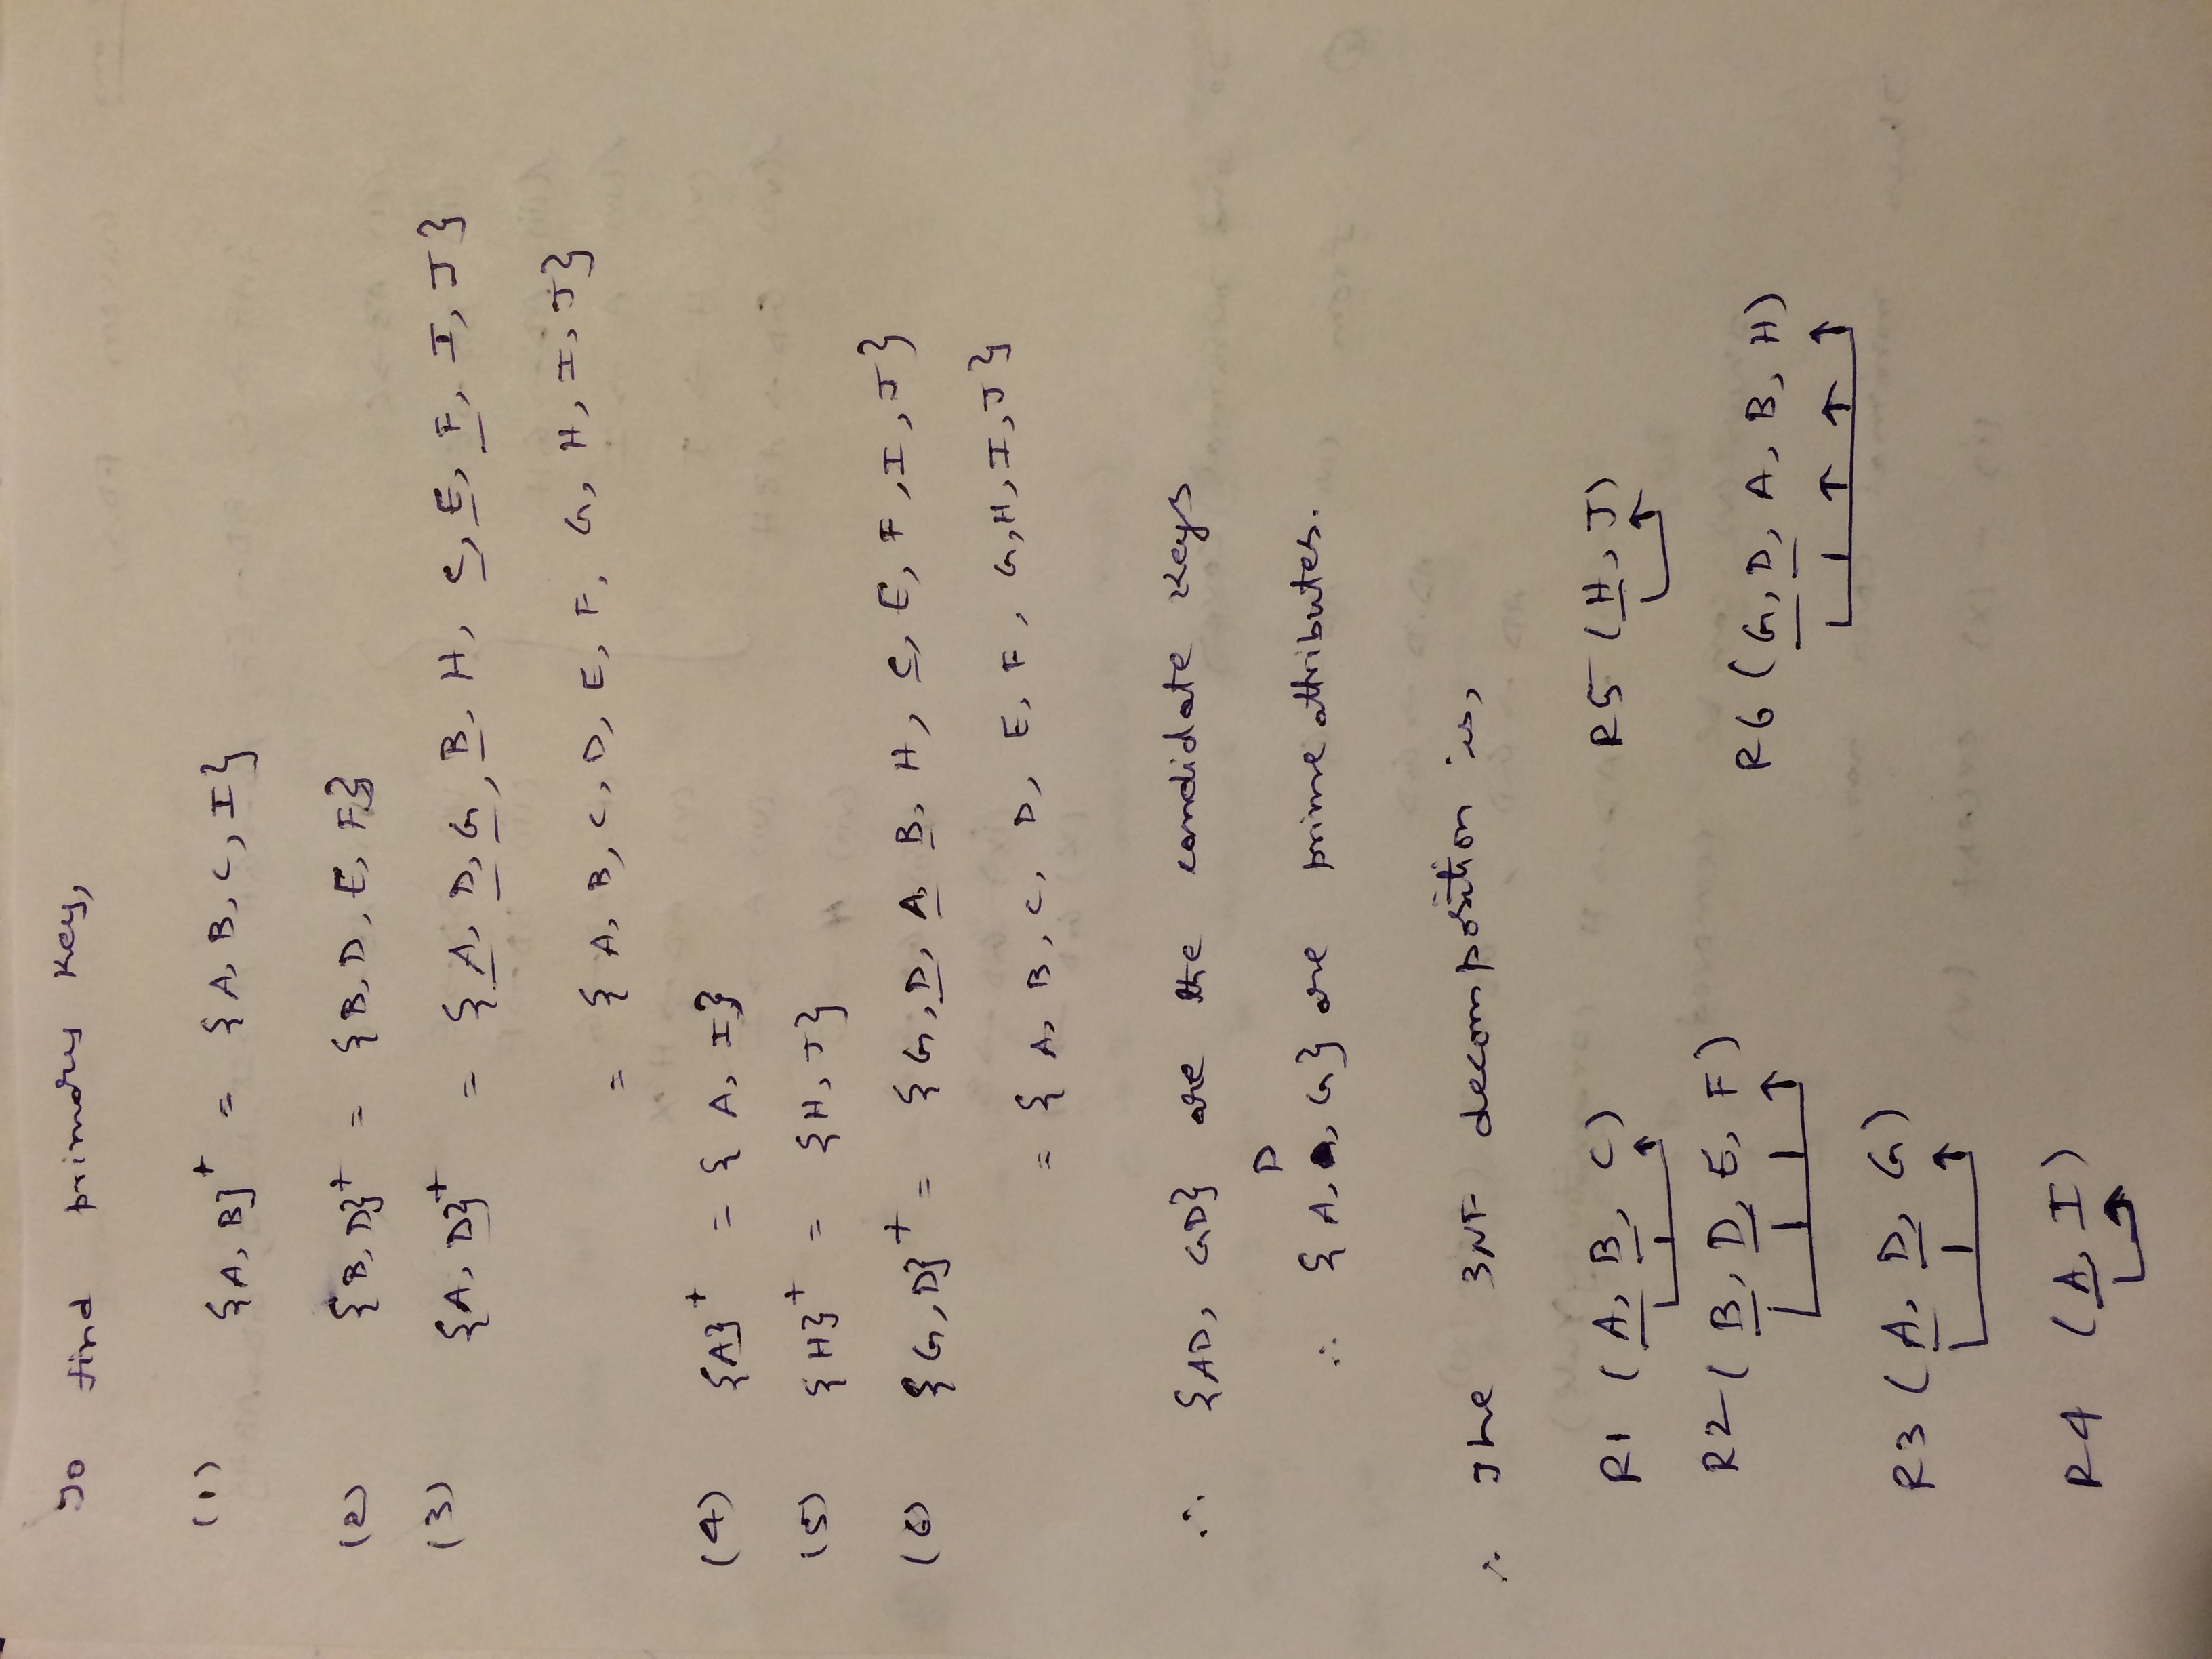 To find primary key,
(1) {A, B}⁺ = {A, B, C, I}
(2) {B, D}⁺ = {B, D, E, F}
(3) {A, D}⁺ = {A, D, G, B, H, C, E, F, I, J}
= {A, B, C, D, E, F, G, H, I, J}
(4) {A}⁺ = {A, I}
(5) {H}⁺ = {H, J}
(6) {G, D}⁺ = {G, D, A, B, H, C, E, F, I, J}
= {A, B, C, D, E, F, G, H, I, J}
∴ {AD, GD} are the candidate keys
∴ {A, D, G} are prime attributes.
∴ The 3NF decomposition is,
R1 (A, B, C)
R2 (B, D, E, F)
R3 (A, D, G)
R4 (A, I)
R5 (H, J)
R6 (G, D, A, B, H)